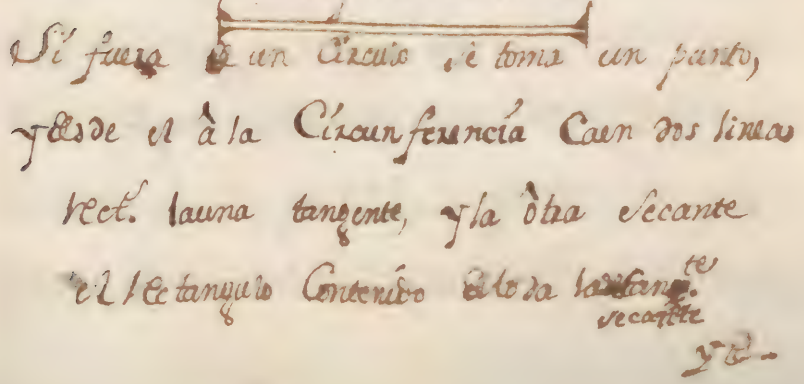 Si fuera de un Círculo se toma un punto,
y desde el à la Círcunferencía Caen dos lineas
rect.s launa tangente, y la òtra Secante
el rectangulo Contenído de toda la
secante